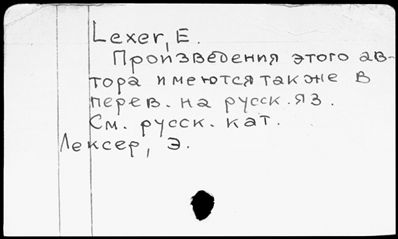 Lexer, E.
Произведения этого ав-
тора имеются также в
перев. на русск. яз.
См. русск. кат.
Лексер, Э.